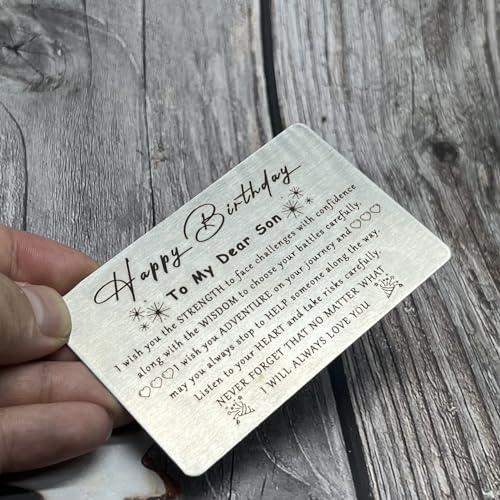 Happy Birthday
To My Dear Son
I wish you the STRENGTH to face challenges with confidence
along with the WISDOM to choose your battles carefully.
I wish you ADVENTURE on your journey and
may you always stop to HELP someone along the way.
Listen to your HEART and take risks carefully.
NEVER FORGET THAT NO MATTER WHAT
I WILL ALWAYS LOVE YOU